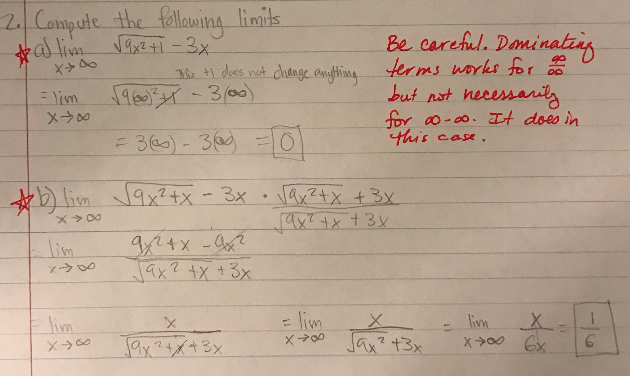 2. Compute the following limits
a) lim x→∞ √(9x²+1) - 3x
This +1 does not change anything
= lim x→∞ √(9(∞)²+1) - 3(∞)
= 3(∞) - 3(∞) = 0
Be careful. Dominating
terms works for ∞/∞
but not necessarily
for ∞-∞. It does in
this case.
b) lim x→∞ √(9x²+x) - 3x · (√(9x²+x) + 3x)/(√(9x²+x) + 3x)
= lim x→∞ (9x²+x - 9x²)/(√(9x²+x) + 3x)
= lim x→∞ x/(√(9x²+x) + 3x) = lim x→∞ x/(√(9x²) + 3x) = lim x→∞ x/6x = 1/6